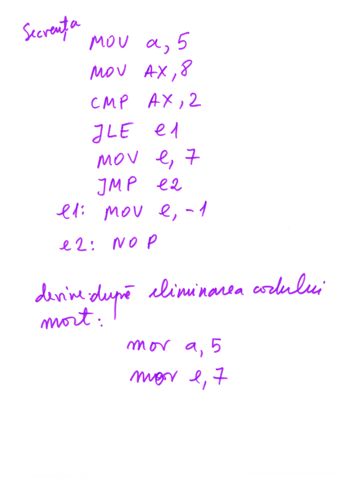 Secvența
MOV a, 5
MOV AX, 8
CMP AX, 2
JLE e1
MOV e, 7
JMP e2
e1: MOV e, -1
e2: NOP
devine după eliminarea codului
mort:
mov a, 5
mov e, 7